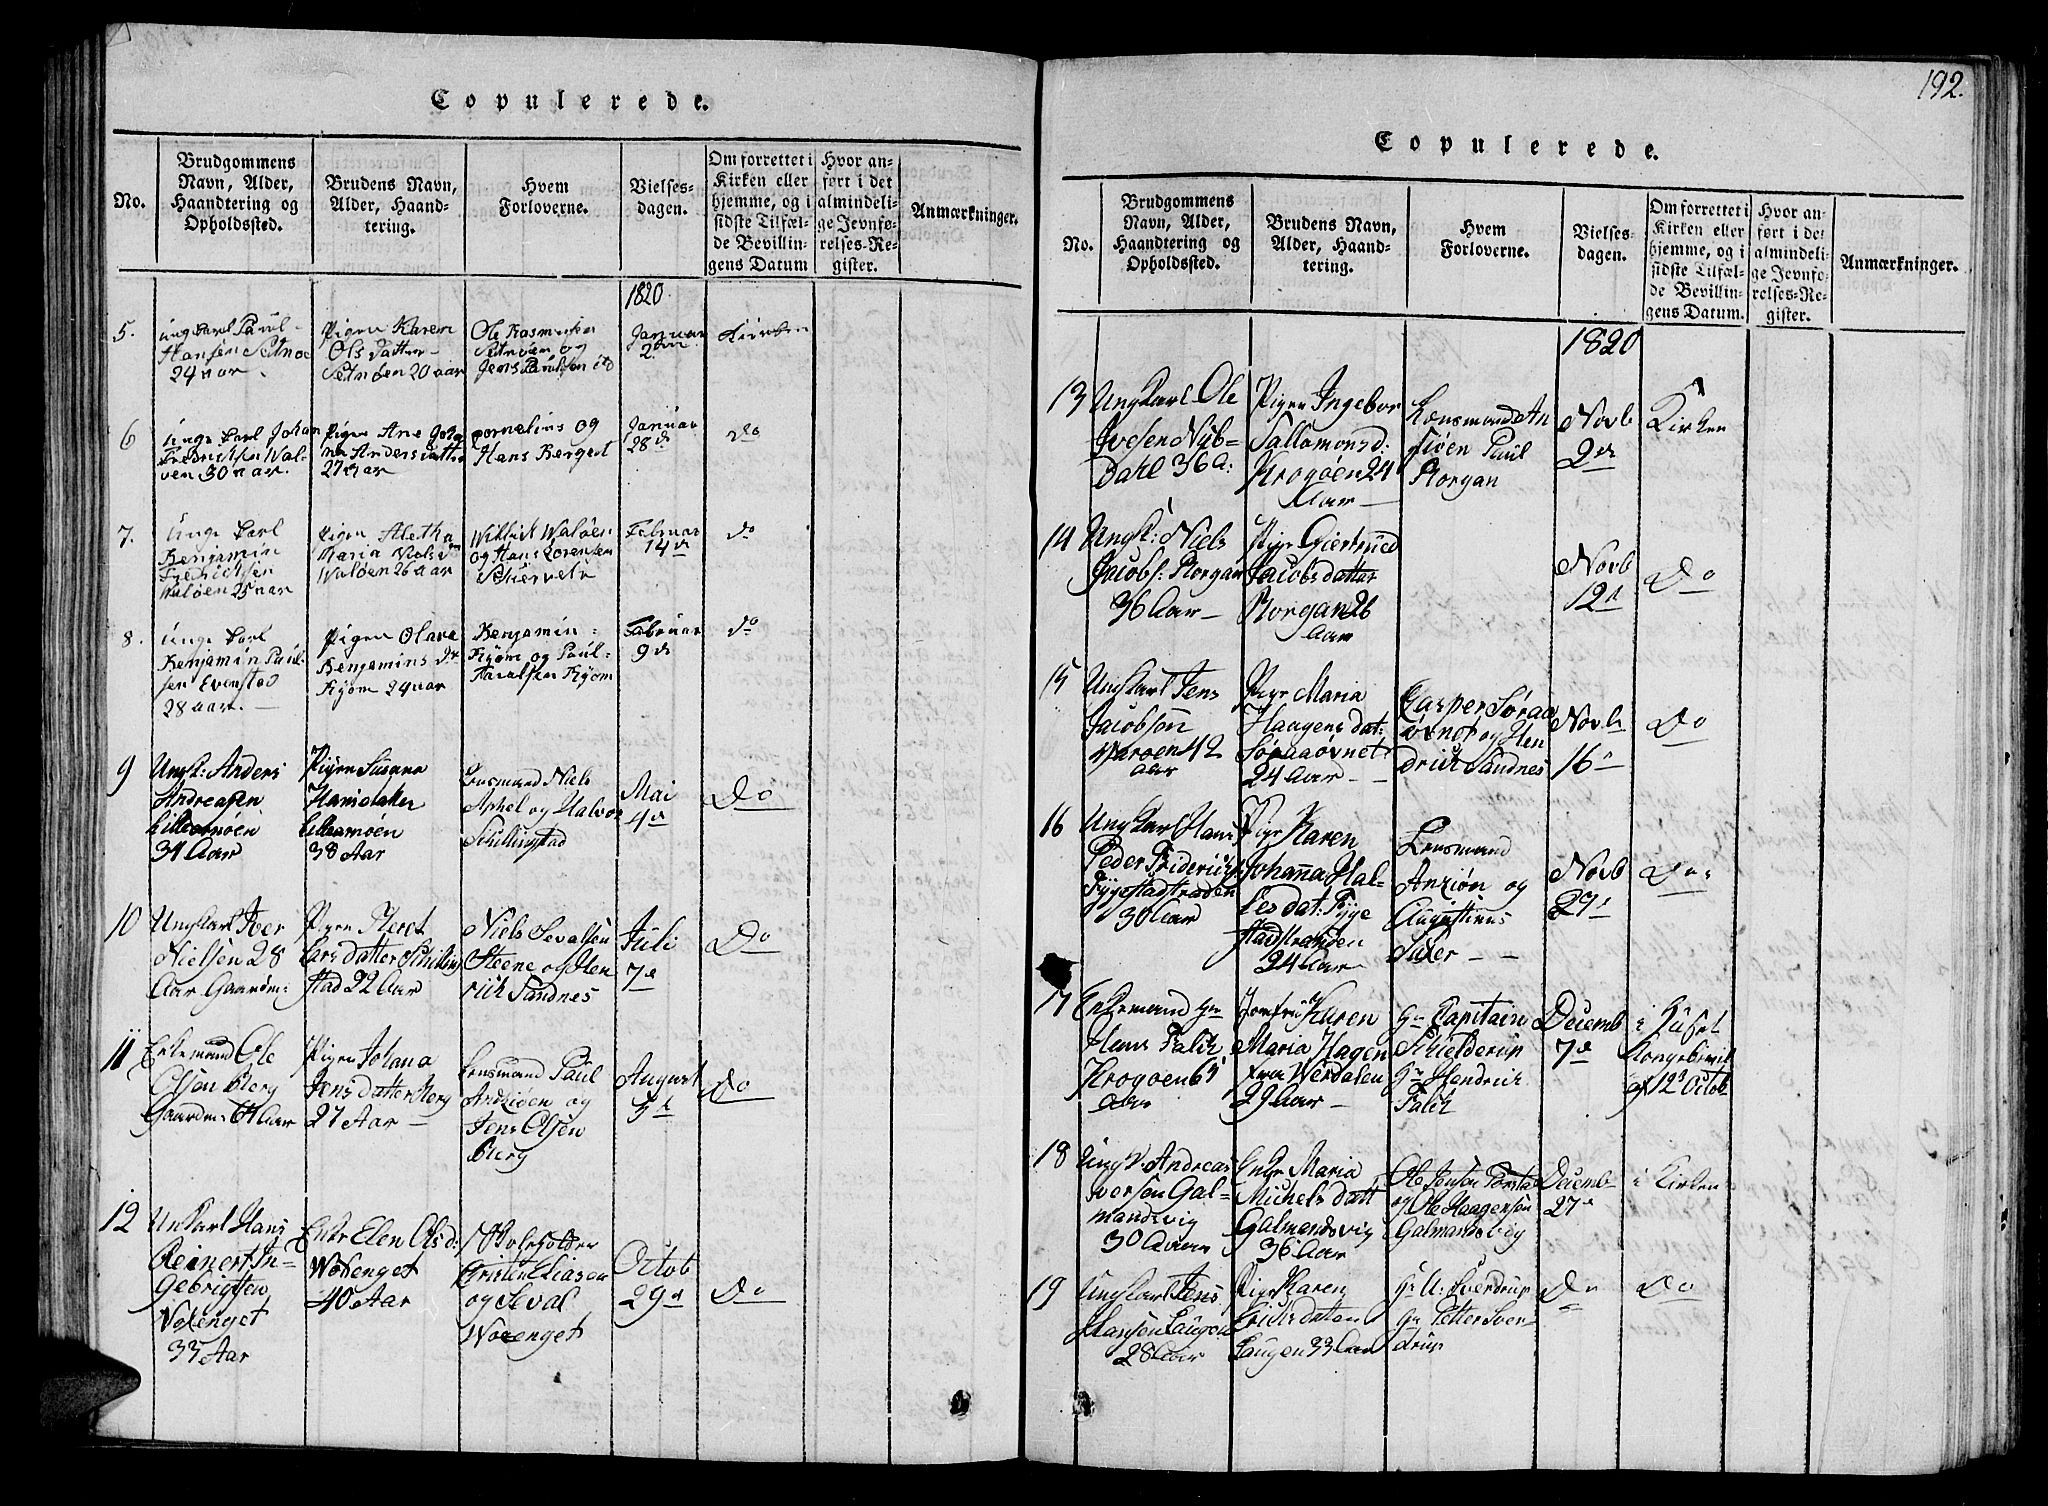 192.
Copulerede.
No.
Brudgommens
Navn, Alder,
Haandtering og
Opholdssted.
Brudens Navn,
Alder, Haand-
tering.
Hvem
Forloverne.
Vielses-
dagen.
Om forrettet i
Kirken eller
hjemme, og i
sidste Tilfæl-
de Bevillin-
gens Datum
Hvor an-
ført i det
almindeli-
ge Jevnfø-
relses-Re-
gister.
Anmærkninger.
1820.
5.
ung karl Paul
Hansen Setnøe
24 aar
Pigen Karen
Ols Datter
Setnøen 20 aar
Ole Rasmusen
Setnøen og
Jens Paulsen
Januar
2
Kirken
6
Unge karl Johan
30 aar.
Pigen Ane
Anders datter
27 aar
Cornelius og
Hans Berget
Januar
28 d
do
7.
Unge karl
Benjamin
Fredrichsen
Waløen 25 aar
Pigen Aletha
Maria
Waløen 26 aar
Waløen
og Hans Lorensen
Februar
14 d
do
8.
Unge karl
Benjamin Paul-
sen Evensted
28 aar.
Pigen Olava
Benjamins
24 aar
Benjamin
og Paul
Februar
9 d
do
9
Ungk: Anders
Andreasen
Lilleamøen
34 Aar
Pigen Susana
Hansdatter
Lilleamøen
38 Aar
Lensmand Niels
Aphel og Halvor
Schillingstad
Mai
4 d
Do
10
Ungkarl Iver
Nielsen 28
Aar Gaardm:
Pigen Meret
Larsdatter Schilling
stad 22 Aar
Niels Sevalsen
Steene og Hen
rich Sandnes
Juli
7 d
Do
11
Enkemand Ole
Olsen Berg
Gaardm: 64 Aar
Pigen Johana
Jens datter Berg
27 Aar
Lensmand Paul
og
Jens Olsen
Berg
August
3 d
Do
12
Unkarl Hans
Reinert In-
gebrigtsen
Volenget
33 Aar
Enke Elen Olsd:
Wolenget
40 Aar
Eliasen
og Seval
Wolenget
Octob
29 d
Do
Copulerede.
No.
Brudgommens
Navn, Alder,
Haandtering og
Opholdssted.
Brudens Navn,
Alder, Haand-
tering.
Hvem
Forloverne.
Vielses-
dagen.
Om forrettet i
Kirken eller
hjemme, og i
sidste Tilfæl-
de Bevillin-
gens Datum.
Hvor an-
ført i det
almindeli-
ge Jevnfø-
relses-Re-
gister.
Anmærkninger.
1820
13
Ungkarl Ole
Ivesen Nyb-
Dahl 36 a:
Pigen Ingebor
Sallamonsd:
Krogøen 24
Aar
Lensmand An
siøen Paul
Korgan
Novb
2 d
Kirken
14
Ungk: Niels
Jacobs: Korgan
36 Aar
Pige Giertrud
Jacobsdatter
Korgan 26
Aar
Novb
12 d
Do
15
Ungkarl Jens
Jacobsen
42
aar
Pige Maria
Haagens dat:
Søraaøvnet
24 Aar
Casper Søraa
øvnet og Hen
drich Sandnes
Novb
16 d
Do
16
Ungkarl Hans
Peder Friderichs
Tygestadstranden
30 Aar
Pige Karen
Johanna Hal-
les dat: Tyge
stadstranden
24 Aar
Lensmand
Anziøn og
Augustinus
Novb
29 d
Do
17
Enkemand Hr
Hans Falch
Krogøen 65
aar
Jomfru Karen
Maria Hagen
fra Werdalen
29 Aar
Hr Capitain
Schielderup
Hr Hendrich
Falch
Decemb
7 d
i Huset
Kongebrevil
af 12 Octob
18
Ungk. Andreas
Iversen Gal-
mandsvig
30 Aar
Enke Maria
Michels datt
Galmandsvig
36 Aar
Ole Jonsen
og Ole Haagensen
Galmandsvig
Decemb
27 d
i Kirken
19
Ungkarl Jens
Hansen Laugen
28 Aar
Pige Karen
Erichsdatter
Laugen 33 Aar
Hr U: Sverdrup
Hr Petter Sver-
drup
Do
Do